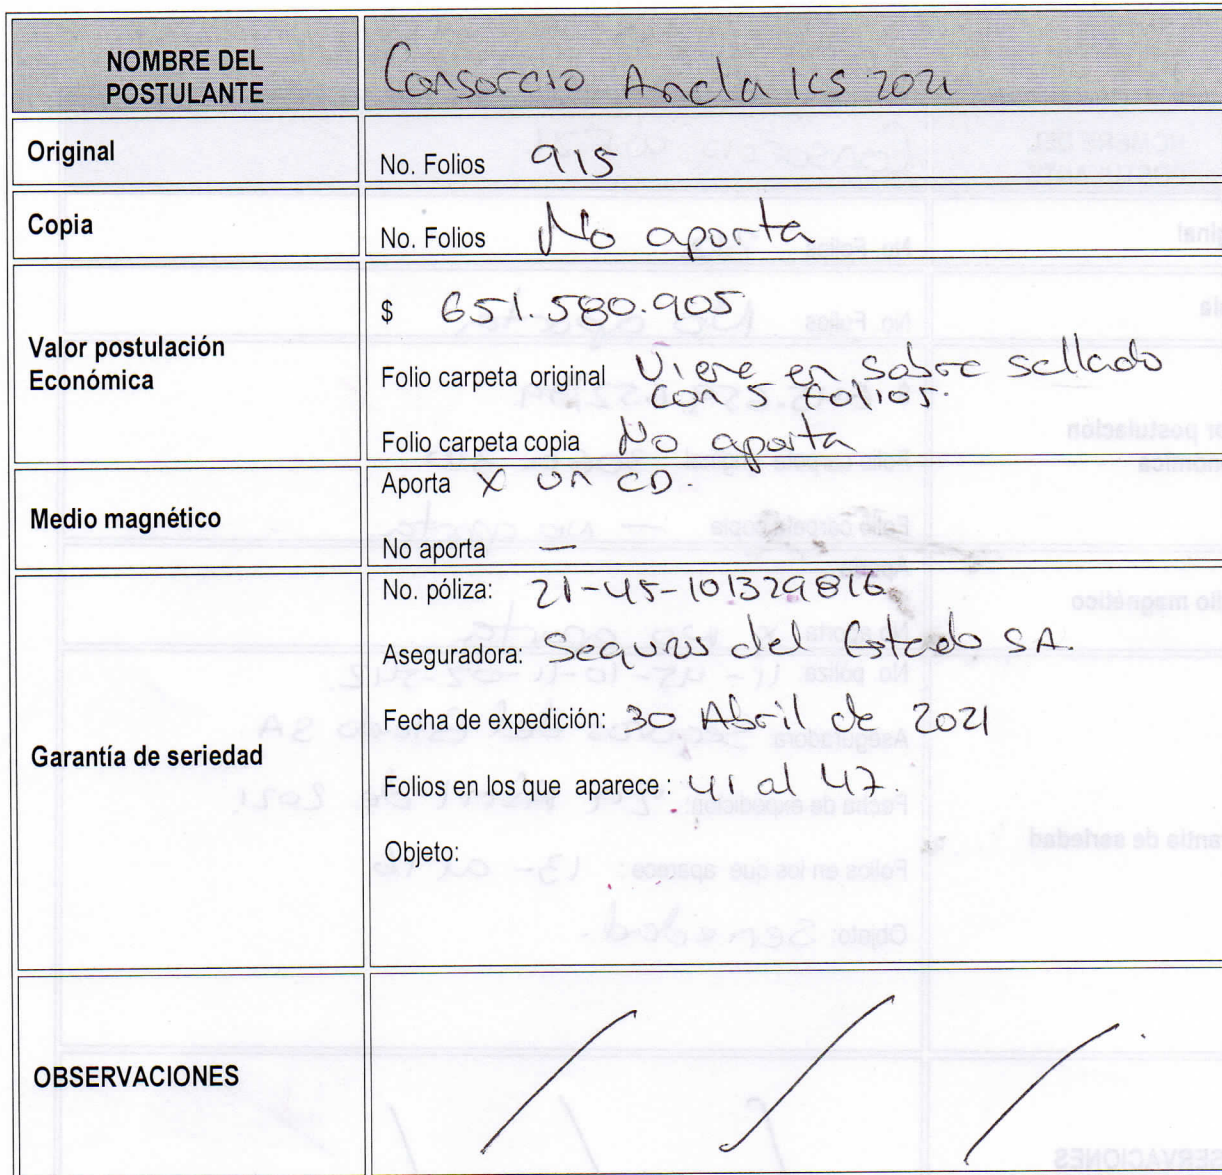 NOMBRE DEL
POSTULANTE
Consorcio Anda ICS 2021
Original
No. Folios 915
Copia
No. Folios No aporta
Valor postulación
Económica
$ 651.580.905
Folio carpeta original Viene en Sobre Sellado
con 5 folios.
Folio carpeta copia No aporta
Medio magnético
Aporta X un CD.
No aporta —
Garantía de seriedad
No. póliza: 21-45-101329816
Aseguradora: Seguros del Estado SA.
Fecha de expedición: 30 Abril de 2021
Folios en los que aparece : 41 al 47.
Objeto:
OBSERVACIONES